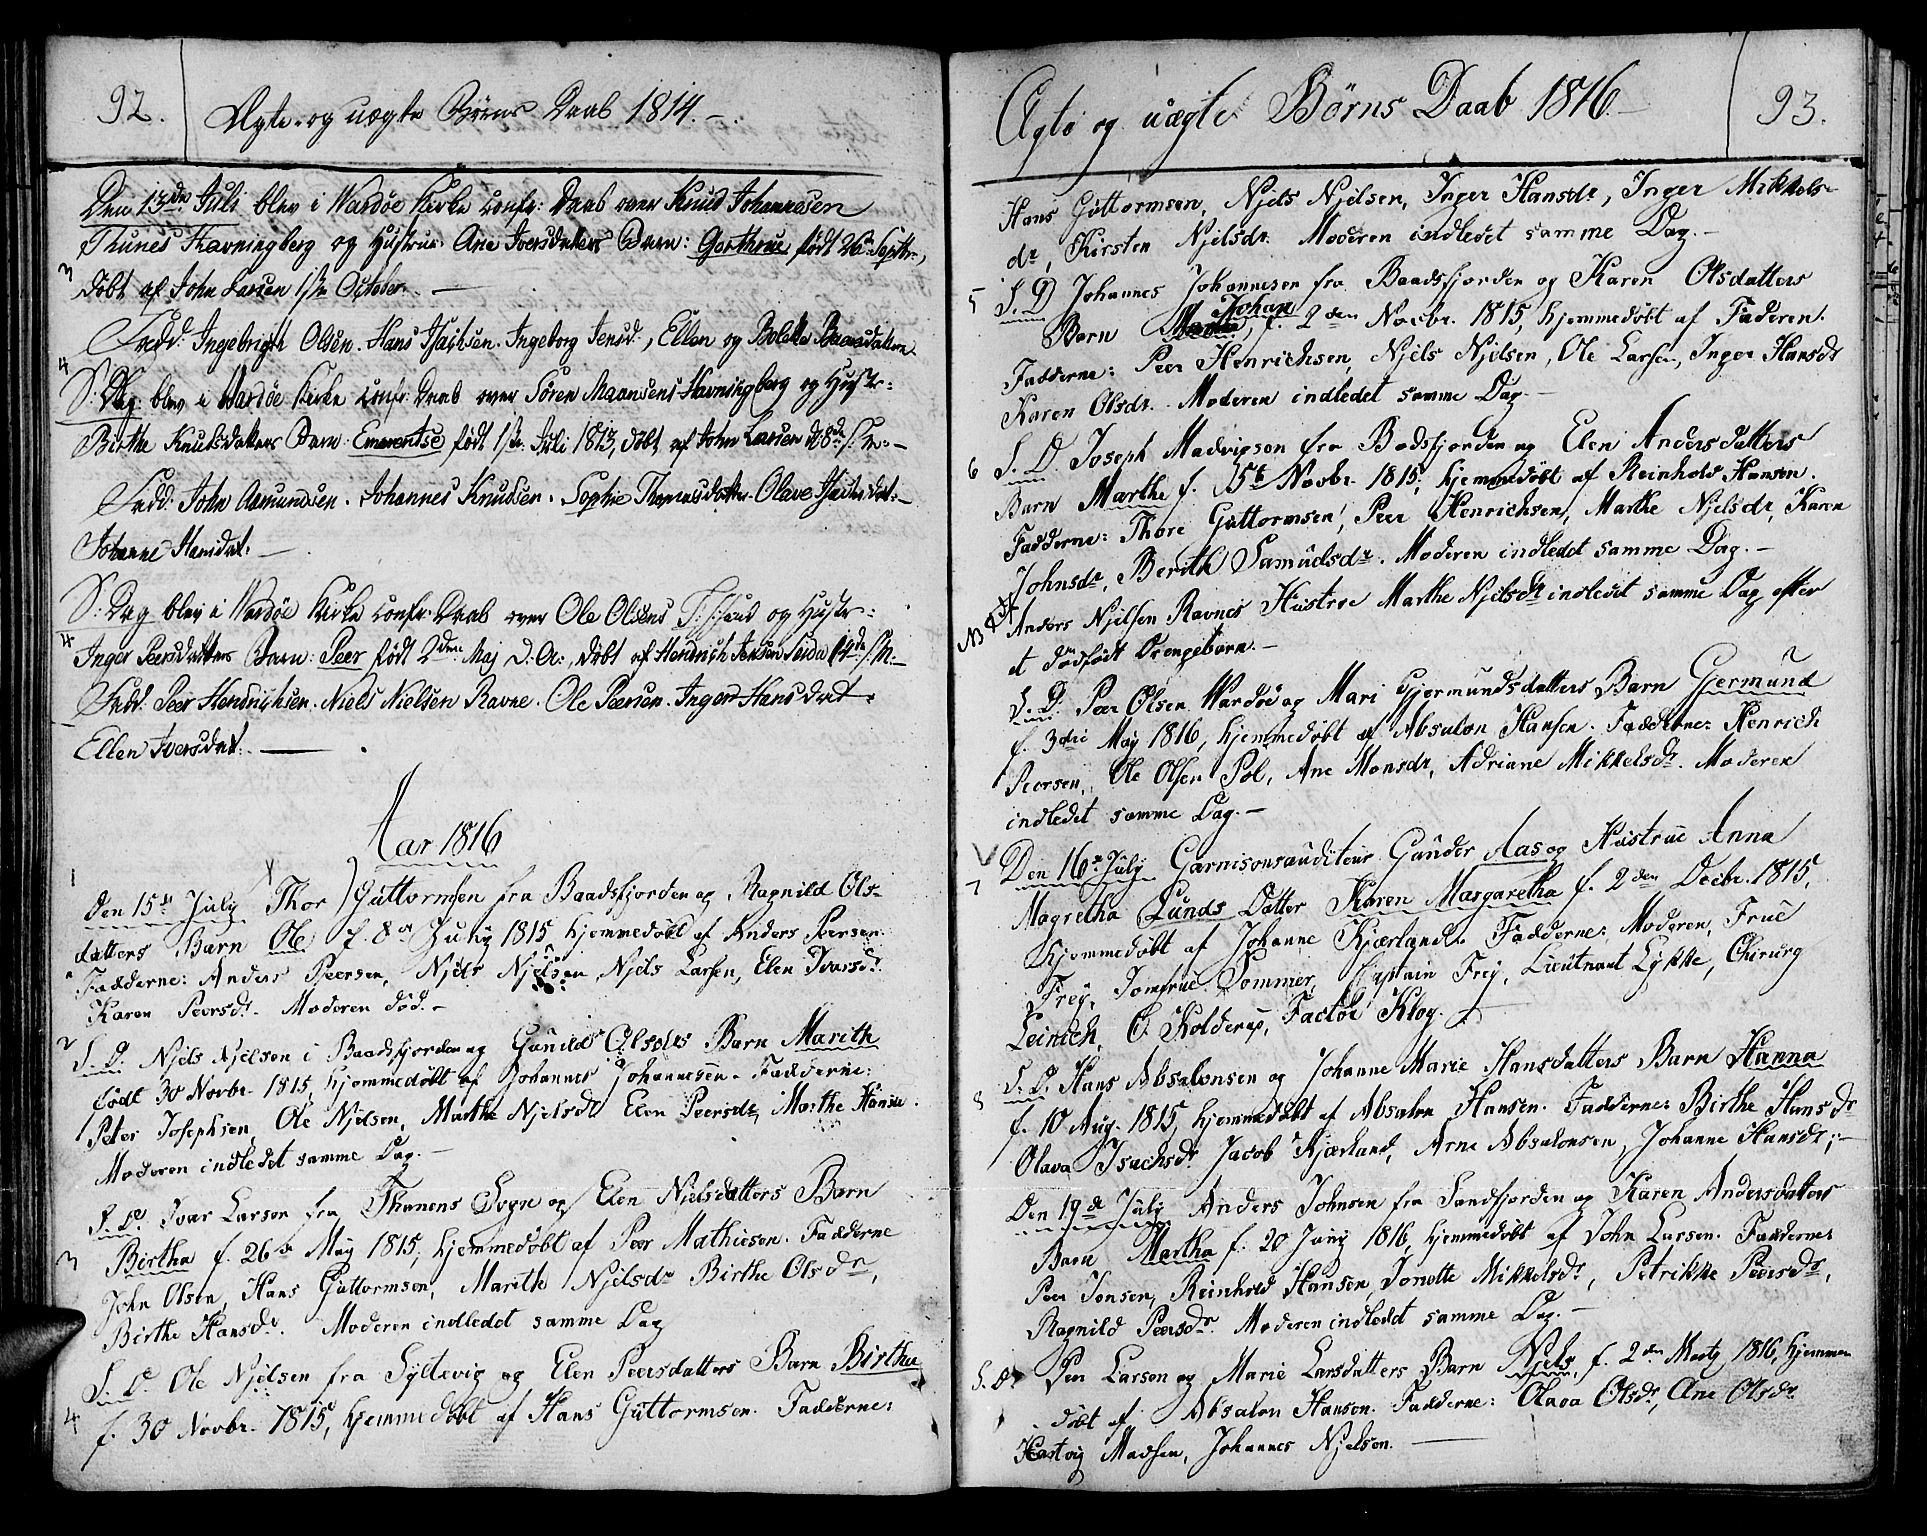 92. Ægte og uægte Børns Daab 1814.
Den 13de Juli blev i Wardøe Kirke confr: Daab over Knud Johannesen
Thunes Havningberg og Hustrues Ane Iversdatters Barn: Gorthrue født 26de Septbr,
3 døbt af John Larsen 1ste October. —
Fadd: Ingebrigt Olsen. Hans Isachsen. Ingeborg Jensd:, Ellen og Bolette
4
S: Dag blev i Wardøe Kirke confr: Daab over Søren Maansens Havningberg og Hustr:
Birthe Knudsdatters Barn: Emerentse født 1ste Juli 1813, døbt af John Larsen d 8de s: M: —
Fadd: John Aamundsen. Johannes Knudsen. Sophie Thomasdatter. Olave Isachsdat: —
Johanne Hansdat: —
S: Dag blev i Wardøe Kirke confr: Daab over Ole Olsens og Hustr:
4 Inger Peersdatters Barn: Peer født 2den Maj d: A:, døbt af Hendrich Jensen 14de s: M: —
Fadd: Peer Hendrichsen. Niels Nielsen Ravne. Ole Peersen. Inger Hansdat:
Ellen Iversdat: —
Aar 1816
1
Den 15de July Thor Guttormsen fra Baadsfjorden og Ragnild Ols-
datters Barn Ole f. 8de Juny 1815 hjemmedøbt af Anders Peersen.
Fadderne: Anders Peersen, Njels Njelsen, Njels Larsen, Elen Ivarsdr
Karen Peersdr. Moderen død. —
2 S. D. Njels Njelsen i Baadsfjorden og Gunild Olsdtrs Barn Marith
født 30 Novbr. 1815, hjemmedøbt af Johannes Johannesen. Fadderne:
Peter Josephsen, Ole Njelsen, Marthe Njelsdr Elen Peersdr, Marthe Hansdr.
Moderen indledet samme Dag. —
S. D. Ivar Larsen fra Thanens Sogn og Elen Njelsdatters Barn
3 Birtha f. 26de May 1815, hjemmedøbt af Peer Mathiesen. Fadderne
John Olsen, Hans Guttormsen, Marith Njelsdr Birthe Olsdr,
Birthe Hansdr. Moderen indledet samme Dag
S. D. Ole Njelsen fra Syltevig og Elen Peersdatters Barn Birtha
4 f. 30 Novbr. 1815, hjemmedøbt af Hans Guttormsen. Fadderne:
Ægte og uægte Børns Daab 1816. — 93.
Hans Guttormsen, Njels Njelsen, Inger Hansdr, Inger Mikkels-
dr, Kirsten Njelsdr. Moderen indledet samme Dag. —
5 S. D Johannes Johannesen fra Baadsfjorden og Karen Olsdatters
Johan
Barn f. 2den Novbr. 1815, hjemmedøbt af Faderen.
Fadderne: Peer Henrichsen, Njels Njelsen, Ole Larsen, Inger Hansdr
Karen Olsdr. Moderen indledet samme Dag. —
6 S. D. Joseph fra Bodsfjorden og Elen Andersdatters
Barn Marthe f. 15de Novbr. 1815, hjemmedøbt af Reinhold Hansen.
Fadderne: Thore Guttormsen, Peer Henrichsen, Marthe Njelsdr, Karen
Johnsdr, Berith Samuelsdr. Moderen indledet samme Dag. —
NB Anders Njelsen Ravnes Hustroe Marthe Njelsdr indledet samme Dag efter
et dødfødt Drengebarn. —
S. D. Peer Olsen Wardøe og Mari Gjermundsdatters Barn Gjermund
f. 3die May 1816, hjemmedøbt af Absalon Hansen. Fadderne: Henrich
Peersen, Ole Olsen Pol, Ane Monsdr, Adriane Mikkelsdr. Moderen
indledet samme Dag. —
7 Den 16de July Garnisonsauditeur Gunder Aas og Hustrue Anna
Magretha Lunds Datter Karen Margaretha f. 2den Decbr. 1815,
hjemmedøbt af Johanne Kjærland. Fadderne: Moderen, Frue
Frey, Jomfrue Sommer, Captain Frey, Lieutnant Lykke, Chirurg
Leinich, C. Kolderup, Factor Klog.
8 S. D. Hans Absalonsen og Johanne Marie Hansdatters Barn Hanna
f. 10 Aug. 1815, hjemmedøbt af Absalon Hansen. Fadderne: Birthe Hansdr
Olava Isachsdr Jacob Kjærland, Arne Absalonsen, Johanne Hansdr; —
Den 19de July Anders Johnsen fra Sandfjorden og Karen Andersdatters
Barn Martha f. 20 Juny 1816, hjemmedøbt af John Larsen. Fadderne:
Peer Jensen, Reinhold Hansen, Jonette Mikkelsdr, Petrikke Peersdr,
Ragnild Peersdr. Moderen indledet samme Dag. —
S. D. Peer Larsen og Marie Larsdatters Barn Njels, f. 2den Marty 1816, hjemme-
døbt af Absalon Hansen. Fadderne: Olava Olsdr, Ane Olsdr
Hartvig Madsen, Johannes Njelsen. —